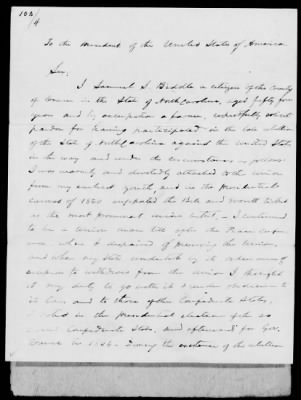 102/4
To the President of the United States of America
Sir,
I Samuel S. Biddle a citizen of the County
of Craven in the State of North Carolina, aged fifty four
years and by occupation a farmer, respectfully solicit
pardon for having participated in the late rebellion
of the State of North Carolina against the United States
in the way and under the circumstances as follows:
I was warmly and devotedly attached to the Union
from my earliest youth, and in the Presidential
canvass of 1860 supported the Bell and Everett ticket
as the most prominent union ticket. I continued
to be a Union man till after the Peace
when I despaired of preserving the Union,
and when my State undertook by its ordinance of
secession to withdraw from the Union I thought
it my duty to go with it & render obedience to
its laws and to those of the Confederate States,
I voted in the Presidential election of the so
called Confederate States, and afterward for Gov.
Vance in 186 . During the existence of the rebellion